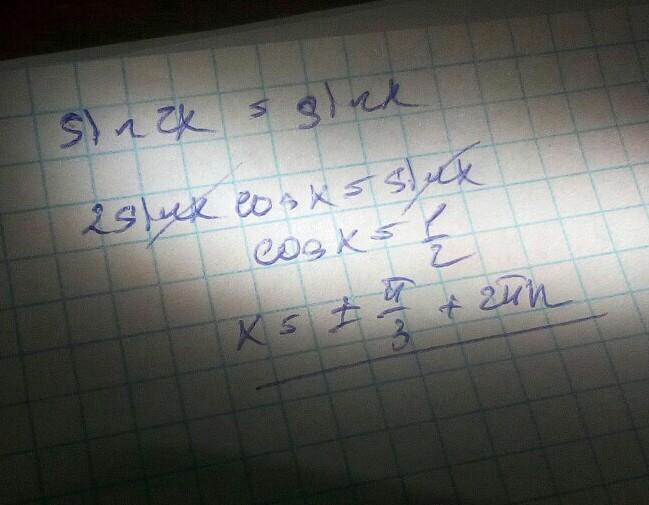 sin2x = sinx
2sinx cosx = sinx
cosx = 1/2
x = ± π/3 + 2πn